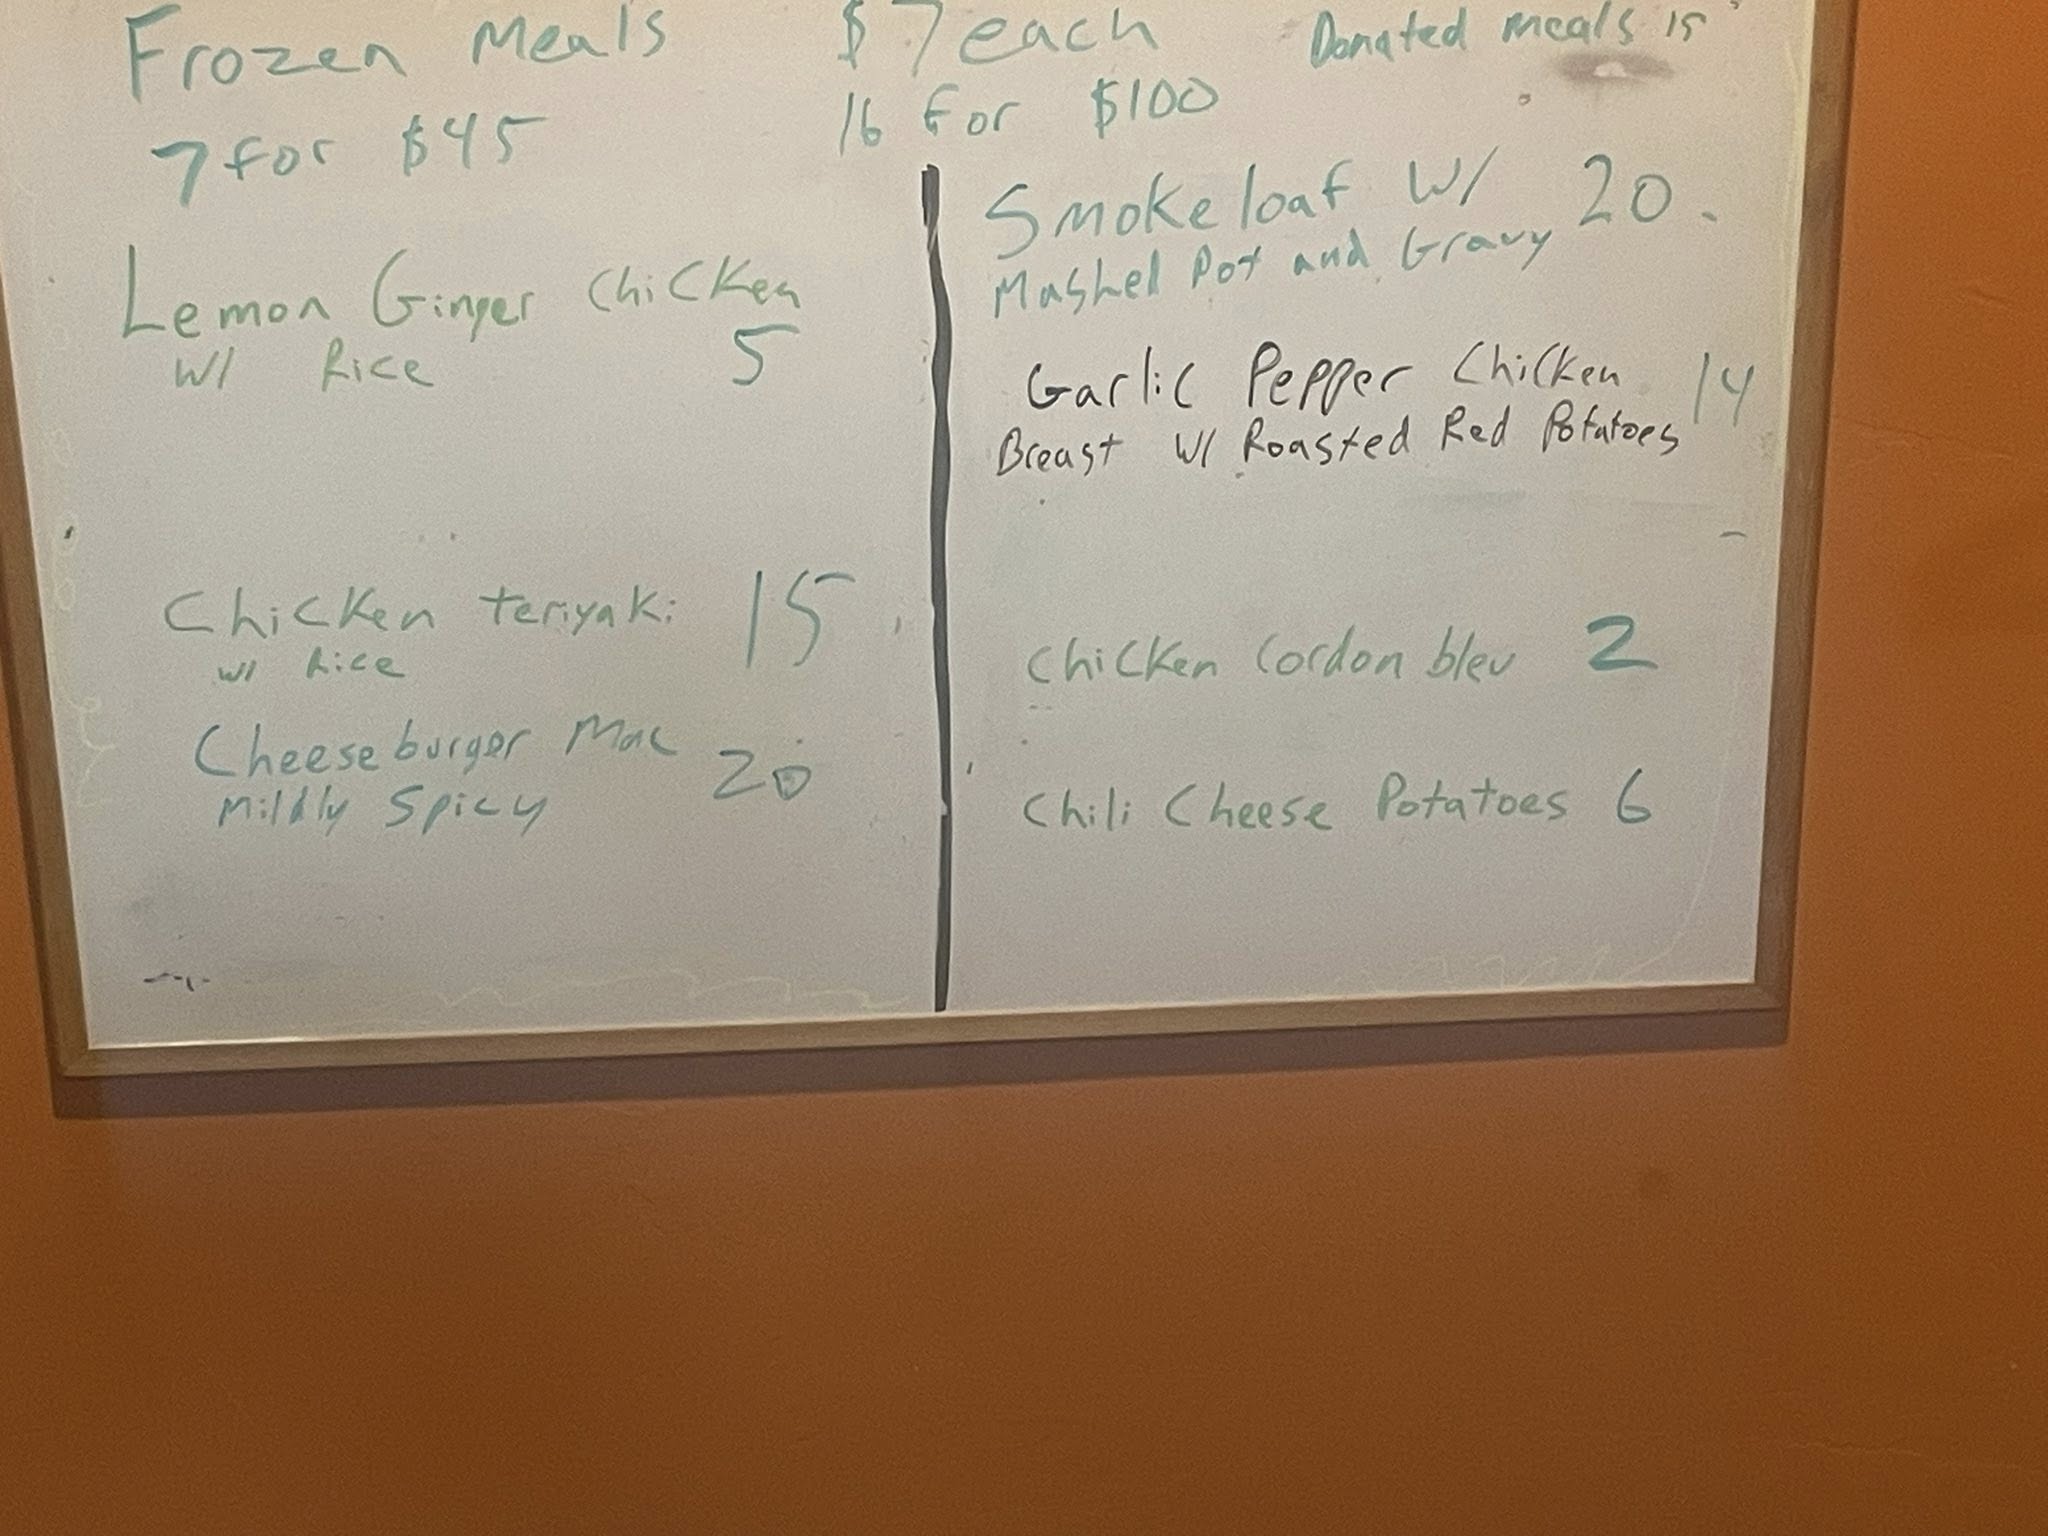 Frozen Meals $7 each Donated meals 15
7 for $45 16 for $100
Lemon Ginger Chicken
w/ Rice 5
Chicken teriyaki 15
w/ Rice
Cheeseburger Mac 20
Mildly Spicy
Smokeloaf w/ 20
Mashed Pot and Gravy
Garlic Pepper Chicken 14
Breast w/ Roasted Red Potatoes
Chicken Cordon bleu 2
Chili Cheese Potatoes 6